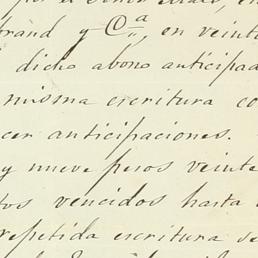 por el Señor
brand y Cª, en veinte
dicho abono anticipad
misma escritura co
cer anticipaciones.
y nueve pesos veinte
tos vencidos hasta
repetida escritura se